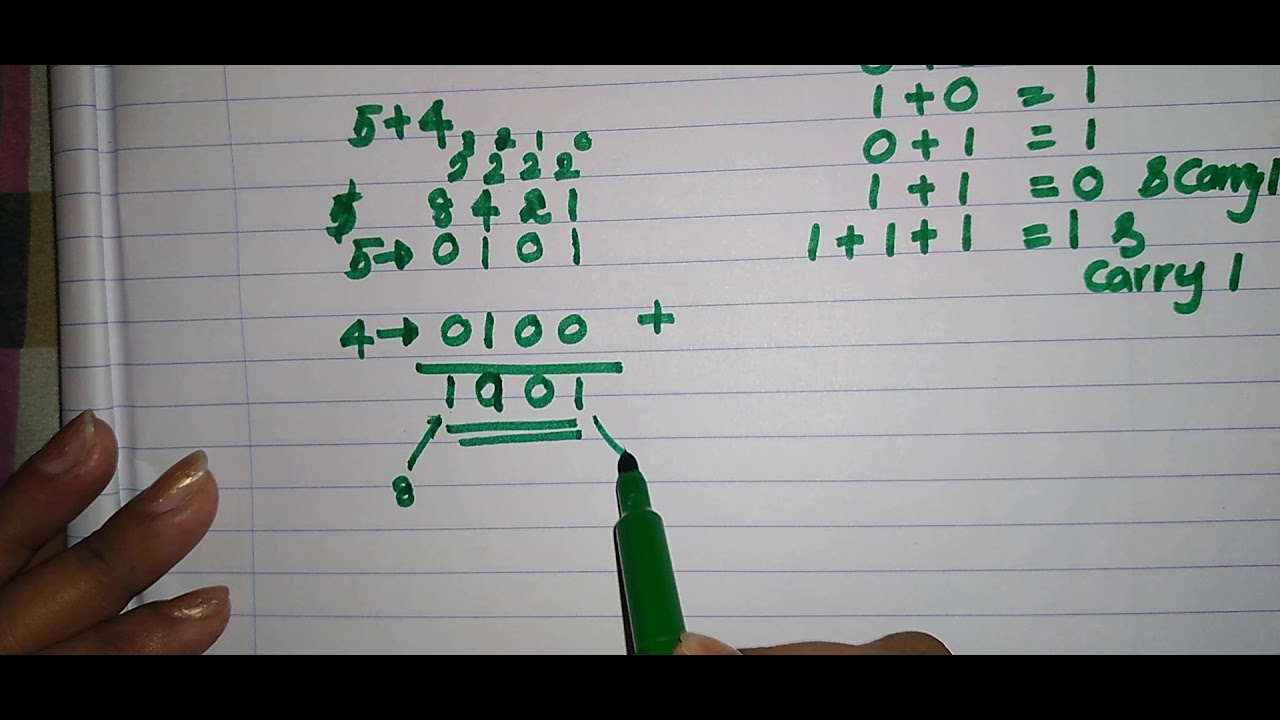 5+4
3 2 1 0
2 2 2 2
8 4 2 1
5→ 0 1 0 1
4→ 0100 +
1001
8
1+0 = 1
0+1 = 1
1+1 = 0 & Carry 1
1+1+1 = 1 &
Carry 1